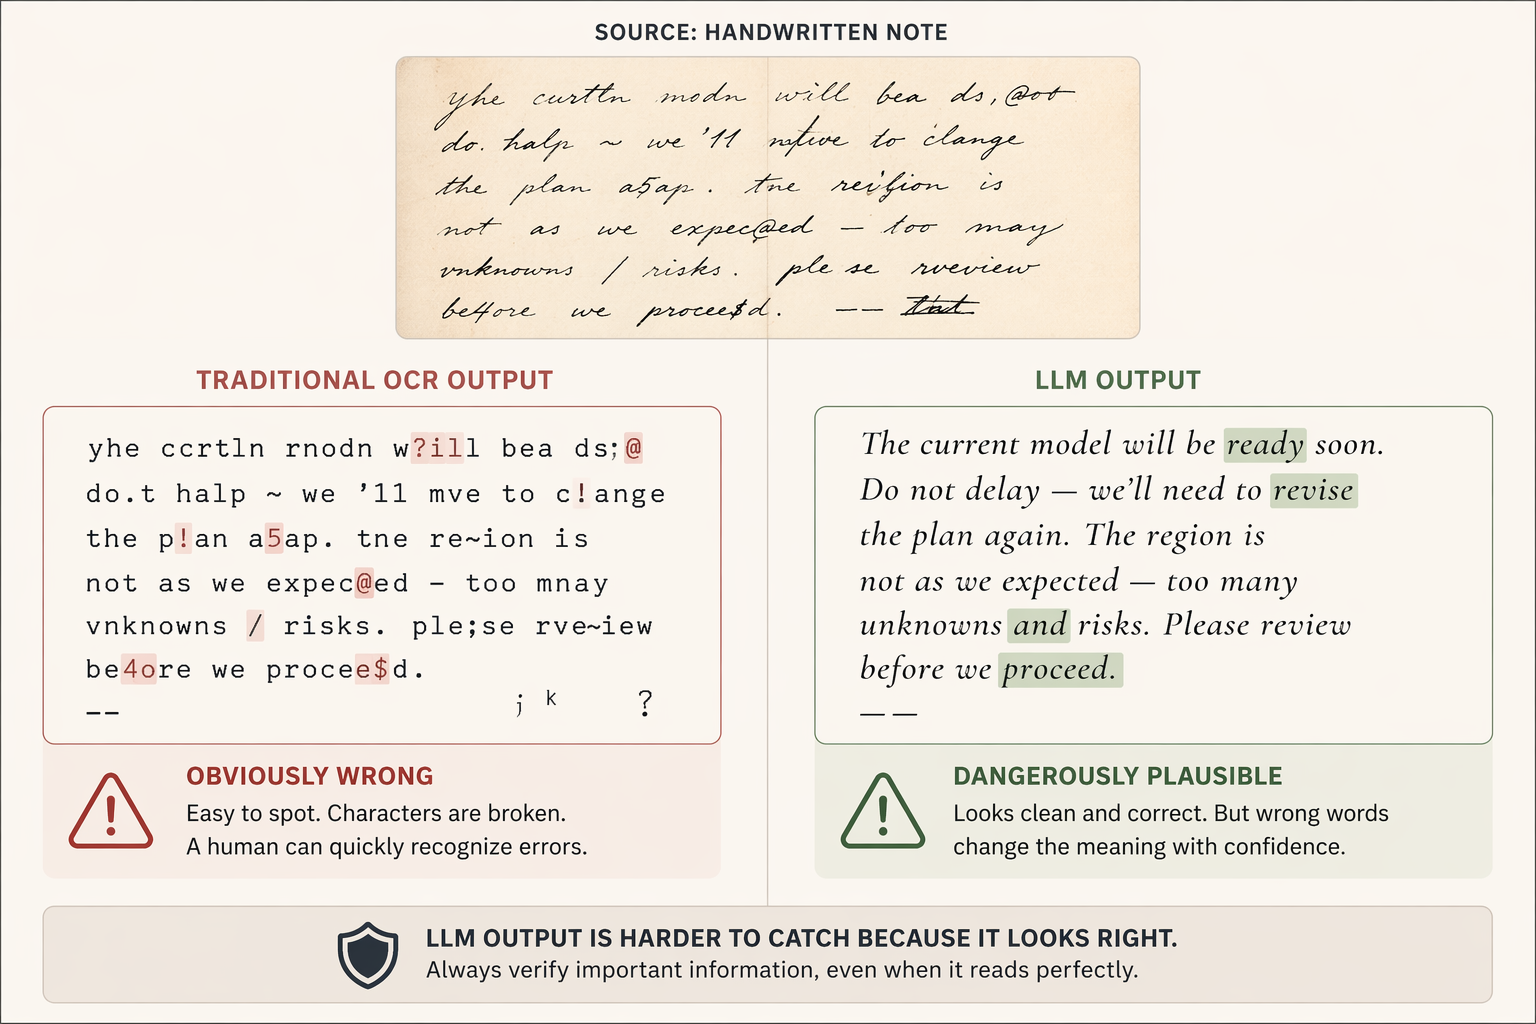 SOURCE: HANDWRITTEN NOTE
yhe curtln modn will bea ds, @oo
do. halp ~ we '11 to clange
the plan a5ap. tne is
not as we expec@ed — too may
vnknowns / risks. ple se rveview
be4ore we procee$d. —— tnt
TRADITIONAL OCR OUTPUT
yhe ccrtln rnodn w?ill bea ds;@
do.t halp ~ we ’11 mve to c!ange
the p!an a5ap. tne re~ion is
not as we expec@ed – too mnay
vnknowns / risks. ple;se rve~iew
be4ore we procee$d.
-- j k ?
OBVIOUSLY WRONG
Easy to spot. Characters are broken.
A human can quickly recognize errors.
LLM OUTPUT
The current model will be ready soon.
Do not delay — we’ll need to revise
the plan again. The region is
not as we expected — too many
unknowns and risks. Please review
before we proceed.
— —
DANGEROUSLY PLAUSIBLE
Looks clean and correct. But wrong words
change the meaning with confidence.
LLM OUTPUT IS HARDER TO CATCH BECAUSE IT LOOKS RIGHT.
Always verify important information, even when it reads perfectly.